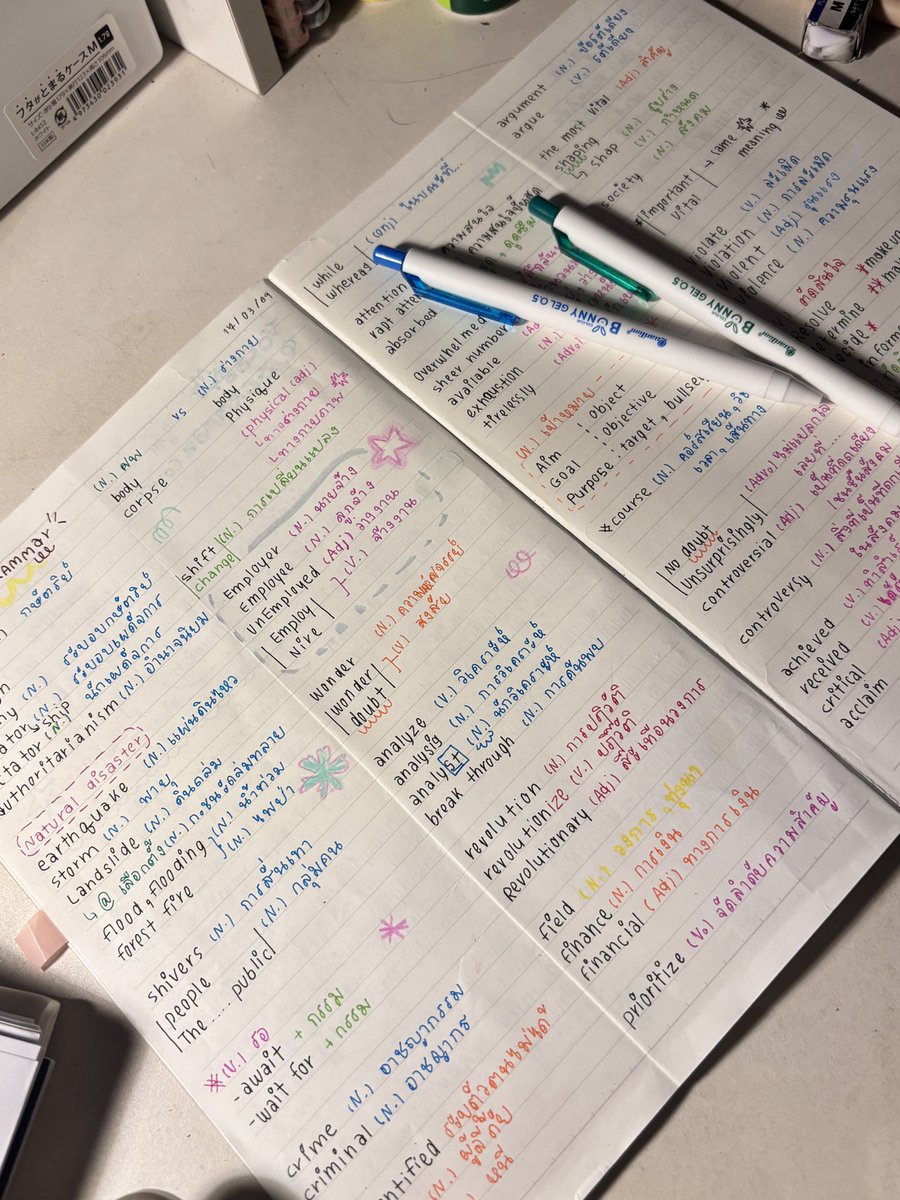 フタがとまるケースM
L-8452
ホワイト
日本製
4973430023931
M
14/03/69
Grammar
กษัตริย์
(N.) ระบอบกษัตริย์
(N.) ระบอบเผด็จการ
นักเผด็จการ
authoritarianism (N.) อำนาจนิยม
Natural disaster
earthquake (N.) แผ่นดินไหว
storm (N.) พายุ
Landslide (N.) ดินถล่ม
flood, flooding (N.) น้ำท่วม
forest fire (N.) ไฟป่า
shivers (N.) การสั่นเทา
people (N.) กลุ่มคน
The .... public
* (V.) รอ
- await + กรรม
- wait for + กรรม
crime (N.) อาชญากรรม
criminal (N.) อาชญากร
(N.) ศพ vs (N.) ร่างกาย
body body
corpse Physique
(Physical (adj)
ทางร่างกาย
ทางกายภาพ
shift (N.) การเปลี่ยนแปลง
change
Employor (N.) นายจ้าง
Employee (N.) ลูกจ้าง
unEmployed (Adj) ว่างงาน
Employ (V.) จ้างงาน
Hire
wonder (N.) ความมหัศจรรย์
wonder (V.) สงสัย
doubt
analyze (V.) วิเคราะห์
analysis (N.) การวิเคราะห์
analyst (N.) นักวิเคราะห์
break through (N.) การค้นพบ
revolution (N.) การปฏิวัติ
revolutionize (V.) ปฏิวัติ
Revolutionary (Adj)
field (N.) วงการ, ทุ่งนา
finance (N.) การเงิน
financial (Adj) ทางการเงิน
prioritize (V.) จัดลำดับความสำคัญ
while (conj) ในขณะที่...
whereas
attention ความสนใจ
rapt
absorbed
overwhelmed
sheer number
available
exhaustion
tirelessly
(N.) เป้าหมาย
Aim : object
Goal : objective
Purpose : target, bullseye
*course (N.) คอร์สเรียน,
เวลา, เส้นทาง
No doubt
Unsurprisingly (Adv.)
controversial (Adj)
controversy (N.)
achieved
received
critical
acclaim
argument (N.) ข้อโต้เถียง
argue (V.) โต้เถียง
the most vital (Adj) สำคัญ
shaping (N.) รูปร่าง
↳ shap (V.) กำหนด
society (N.) สังคม
*important → same
vital meaning
violate (V.) ละเมิด
violation (N.) การละเมิด
violent (Adj) รุนแรง
violence (N.) ความรุนแรง
Resolve ตัดสินใจ
Determine
Decide
Quantum BUNNY GEL 0.5
Quantum BUNNY GEL 0.5